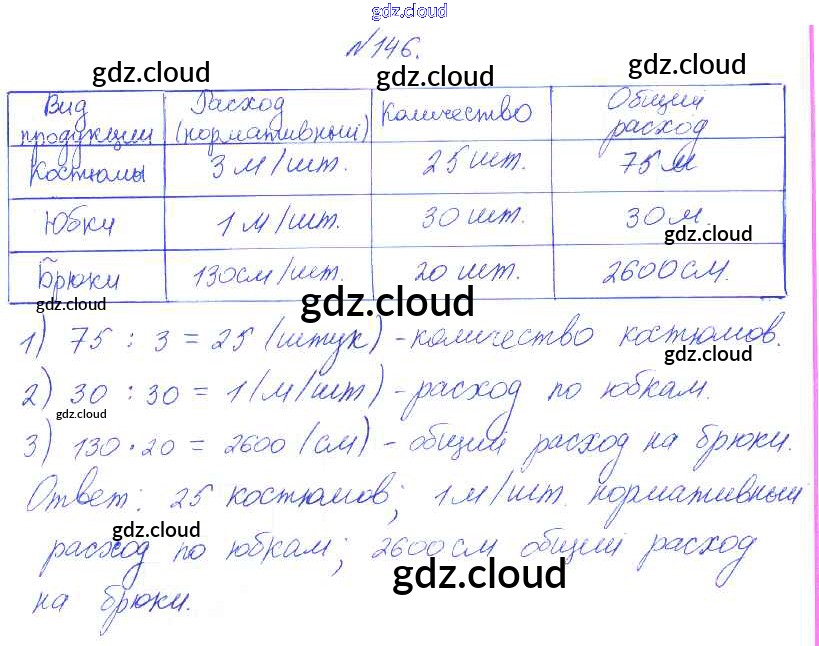 gdz.cloud
№146.
gdz.cloud gdz.cloud gdz.cloud
Вид продукции Расход (нормативный) Количество Общий расход
Костюмы 3 м/шт. 25 шт. 75 м
Юбки 1 м/шт. 30 шт. 30 м.
gdz.cloud
Брюки 130 см/шт. 20 шт. 2600 см.
gdz.cloud gdz.cloud
1) 75 : 3 = 25 (штук) - количество костюмов.
gdz.cloud
2) 30 : 30 = 1 (м/шт) - расход по юбкам.
gdz.cloud
3) 130 · 20 = 2600 (см) - общий расход на брюки.
Ответ: 25 костюмов; 1 м/шт. нормативный
gdz.cloud
расход по юбкам; 2600 см общий расход
gdz.cloud
на брюки.